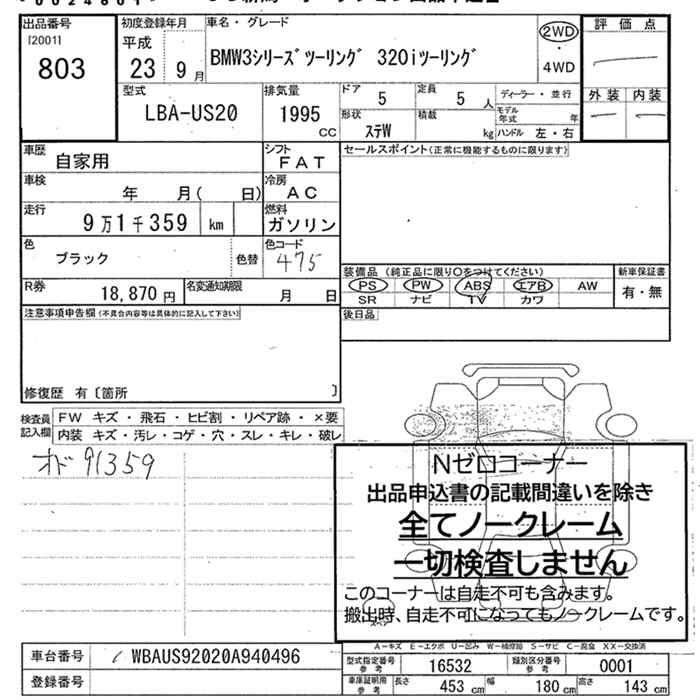 出品番号 初度登録年月 車名・グレード 評価点
[2001] 平成 2WD
803 23年9月 BMW3シリーズツーリング 320iツーリング ・
4WD
型式 排気量 ドア 定員 ディーラー・並行 外装 内装
LBA-US20 1995 CC 5 5人 モデル年式 年
形状 積載
ステW kg ハンドル 左・右
車歴 自家用 シフト FAT セールスポイント(正常に機能するものに限ります)
車検 年 月( 日) 冷房 AC
走行 9万1千359 km 燃料 ガソリン
色 ブラック 色替 色コード 475
装備品(純正品に限り○をつけてください) 新車保証書
R券 18,870円 名変通知期限 月 日 PS PW ABS エアB AW 有・無
SR ナビ TV カワ
注意事項申告欄(不具合内容等は具体的に記入して下さい) 後日品
修復歴 有〔箇所 〕
検査員記入欄 FW キズ・飛石・ヒビ割・リペア跡・×要
内装 キズ・汚レ・コゲ・穴・スレ・キレ・破レ
オド 91359
Nゼロコーナー
出品申込書の記載間違いを除き
全てノークレーム
一切検査しません
このコーナーは自走不可も含みます。
搬出時、自走不可になってもノークレームです。
スペア
A-キズ E-エクボ U-凹み W-補修跡 S-サビ C-腐食 XX-交換済
車台番号 WBAUS92020A940496 型式指定番号 参考 16532 類別区分番号 参考 0001
登録番号 車庫証明用 参考 長さ 453cm 幅 180cm 高さ 143cm